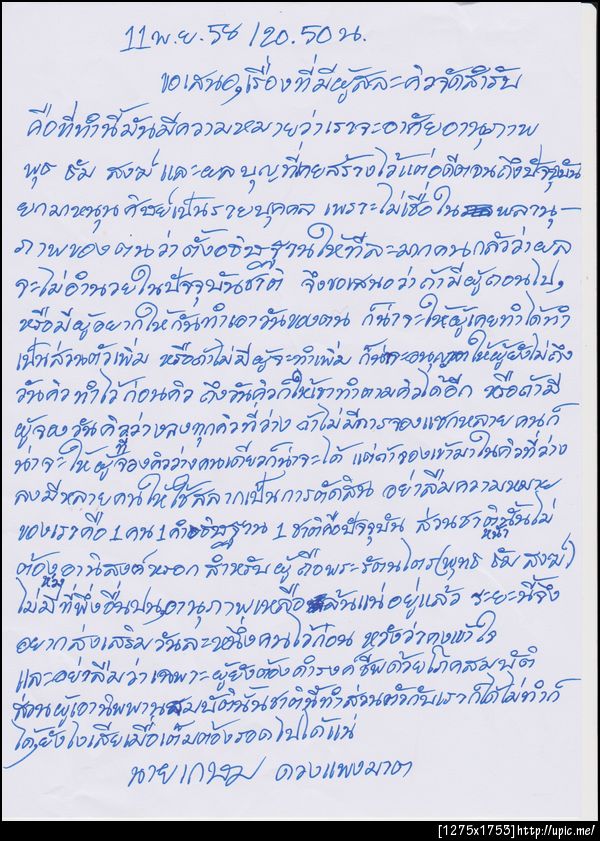 11 พ.ย. 58 / 20.50 น.
ขอเสนอ, เรื่องที่มีผู้สละคิวจัดสำรับ
คือที่ทำนี้มันมีความหมายว่าเราจะอาศัยอานุภาพ
พุธ ธัม สงฆ์ และผลบุญที่เคยสร้างไว้แต่อดีตจนถึงปัจจุบัน
ยกมาหนุนศิษย์เป็นรายบุคคล เพราะไม่เชื่อในพลานุ-
ภาพของตนว่าตั้งอธิษฐานให้ทีละมากคนกลัวว่าผล
จะไม่อำนวยในปัจจุบันชาติ จึงขอเสนอว่าถ้ามีผู้ถอนไป,
หรือมีผู้อยากให้กันทำเอาวันของตน ก็น่าจะให้ผู้เคยทำได้ทำ
เป็นส่วนตัวเพิ่ม หรือถ้าไม่มีผู้จะทำเพิ่ม ก็น่าจะอนุญาตให้ผู้ยังไม่ถึง
วันคิวทำไว้ก่อนคิว ถึงวันคิวก็ให้เขาทำตามคิวได้อีก หรือถ้ามี
ผู้จองวันคิวว่างลงทุกคิวที่ว่าง ถ้าไม่มีการจองแซกหลายคนก็
น่าจะให้ผู้จองคิวว่างคนเดียวก็น่าจะได้ แต่ถ้าจองเข้ามาในคิวที่ว่าง
ลงมีหลายคนให้ใช้สลากเป็นการตัดสิน อย่าลืมความหมาย
ของเราคือ 1 คน 1 คำอธิษฐาน 1 ชาติคือปัจจุบัน ส่วนชาติหน้านั้นไม่
ต้องห่วงอานิสงต์หรอก สำหรับผู้ถือพระรัตนไตร (พุทธ ธัม สงฆ์)
ไม่มีที่พึ่งอื่นปน, อานุภาพเหลือล้นแน่อยู่แล้ว ระยะนี้จึง
อยากส่งเสริมวันละหนึ่งคนไว้ก่อน หวังว่าคงเข้าใจ
และอย่าลืมว่าเฉพาะผู้ยังต้องดำรงค์ชีพด้วยโภคสมบัติ
ส่วนผู้เอานิพพานสมบัตินั้นชาตินี้ทำส่วนตัวกับเราก็ได้ไม่ทำก็
ได้, ยังไงเสียเมื่อเต็มต้องรอดไปได้แน่
นายเกษม ดวงแพงมาต
[1275x1753]http://upic.me/